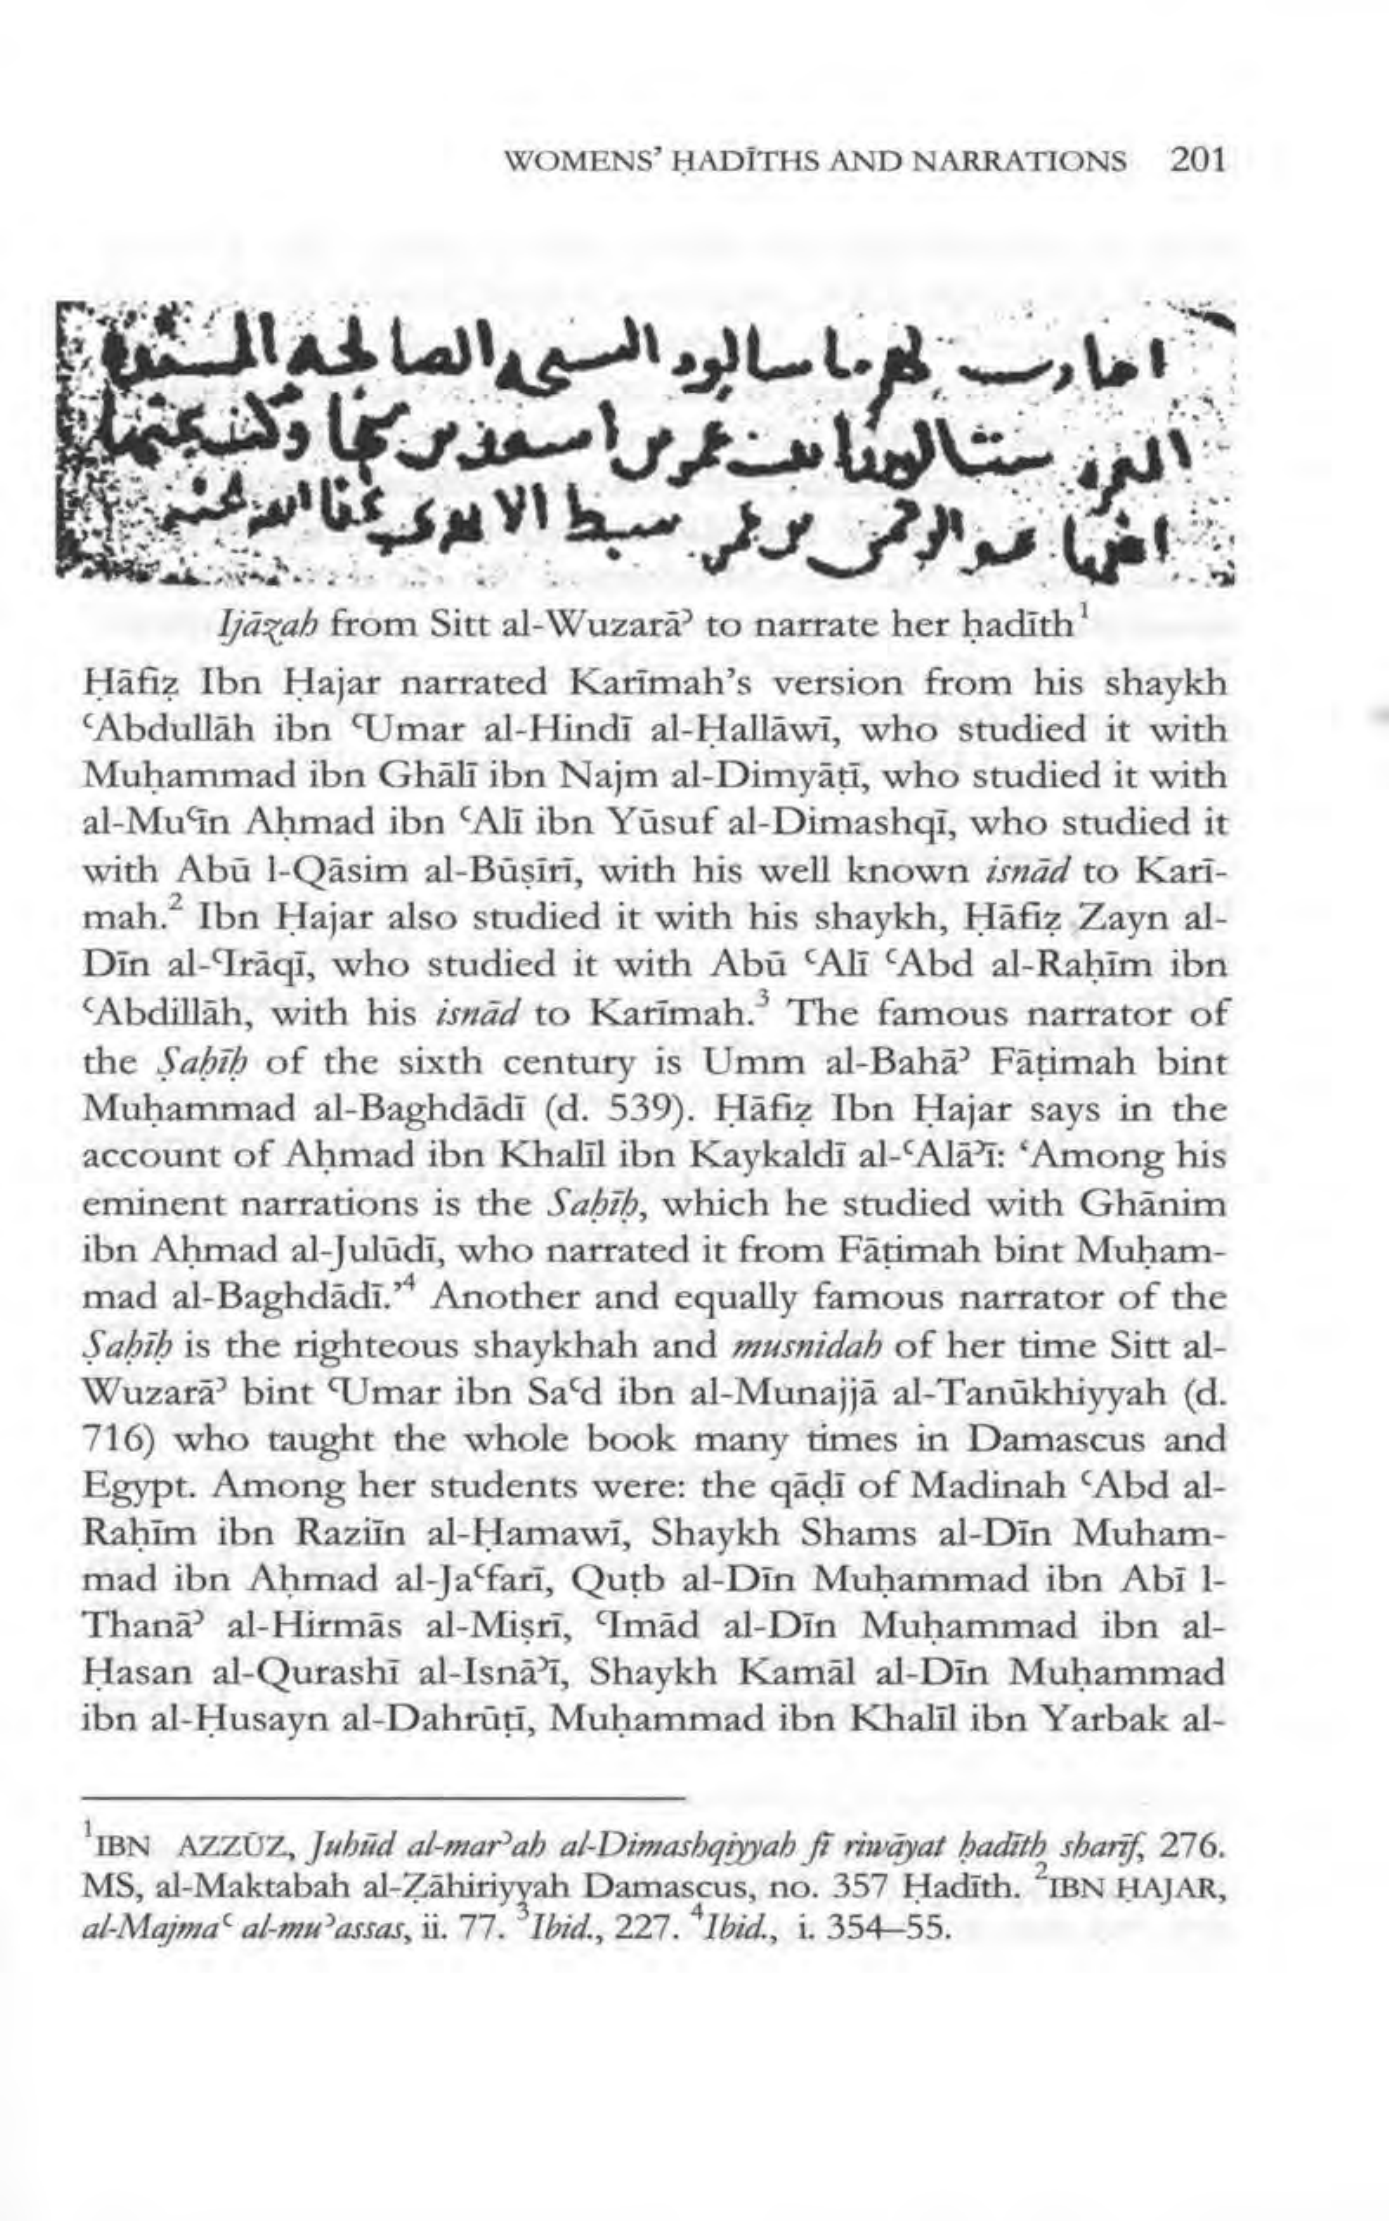 WOMENS’ ḤADĪTHS AND NARRATIONS 201
اجازت لهم ما سالوه
ست الوزرا بنت عمر بن اسعد بن منجا وكتب عنها
عبد الرحمن بن عمر سبط الابهري عفا الله عنه
Ijāẓah from Sitt al-Wuzarāʾ to narrate her ḥadīth¹
Ḥāfiẓ Ibn Ḥajar narrated Karīmah’s version from his shaykh
ʿAbdullāh ibn ʿUmar al-Hindī al-Ḥallāwī, who studied it with
Muḥammad ibn Ghālī ibn Najm al-Dimyāṭī, who studied it with
al-Muʿīn Aḥmad ibn ʿAlī ibn Yūsuf al-Dimashqī, who studied it
with Abū l-Qāsim al-Būṣīrī, with his well known isnād to Karī-
mah.² Ibn Ḥajar also studied it with his shaykh, Ḥāfiẓ Zayn al-
Dīn al-ʿIrāqī, who studied it with Abū ʿAlī ʿAbd al-Raḥīm ibn
ʿAbdillāh, with his isnād to Karīmah.³ The famous narrator of
the Ṣaḥīḥ of the sixth century is Umm al-Bahāʾ Fāṭimah bint
Muḥammad al-Baghdādī (d. 539). Ḥāfiẓ Ibn Ḥajar says in the
account of Aḥmad ibn Khalīl ibn Kaykaldī al-ʿAlāʾī: ‘Among his
eminent narrations is the Saḥīḥ, which he studied with Ghānim
ibn Aḥmad al-Julūdī, who narrated it from Fāṭimah bint Muḥam-
mad al-Baghdādī.’⁴ Another and equally famous narrator of the
Ṣaḥīḥ is the righteous shaykhah and musnidah of her time Sitt al-
Wuzarāʾ bint ʿUmar ibn Saʿd ibn al-Munajjā al-Tanūkhiyyah (d.
716) who taught the whole book many times in Damascus and
Egypt. Among her students were: the qāḍī of Madinah ʿAbd al-
Raḥīm ibn Raziīn al-Ḥamawī, Shaykh Shams al-Dīn Muham-
mad ibn Aḥmad al-Jaʿfarī, Quṭb al-Dīn Muḥammad ibn Abī l-
Thanāʾ al-Hirmās al-Miṣrī, ʿImād al-Dīn Muḥammad ibn al-
Ḥasan al-Qurashī al-Isnāʾī, Shaykh Kamāl al-Dīn Muḥammad
ibn al-Ḥusayn al-Dahrūṭī, Muḥammad ibn Khalīl ibn Yarbak al-
¹IBN AZZŪZ, Juhūd al-marʾah al-Dimashqiyyah fī riwāyat ḥadīth sharīf, 276.
MS, al-Maktabah al-Ẓāhiriyyah Damascus, no. 357 Ḥadīth. ²IBN ḤAJAR,
al-Majmaʿ al-muʾassas, ii. 77. ³Ibid., 227. ⁴Ibid., i. 354–55.